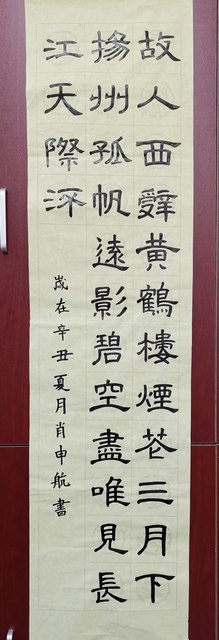 故人西辭黃鶴樓煙花三月下
揚州孤帆遠影碧空盡唯見長
江天際流
歲在辛丑夏月肖申航書